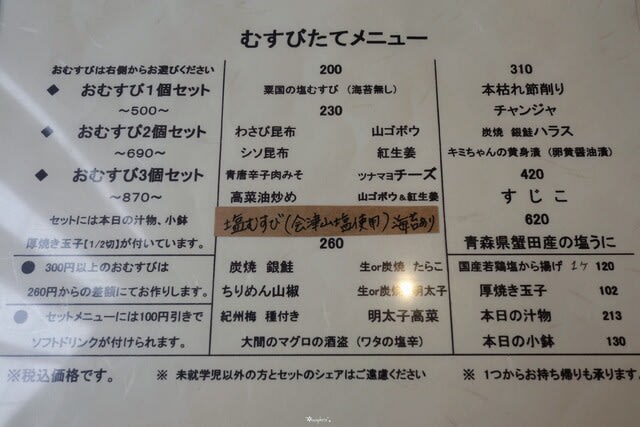 むすびたてメニュー
おむすびは右側からお選びください
◆ おむすび1個セット
～500～
◆ おむすび2個セット
～690～
◆ おむすび3個セット
～870～
セットには本日の汁物、小鉢
厚焼き玉子[1/2切]が付いています。
● 300円以上のおむすびは
260円からの差額にてお作りします。
● セットメニューには100円引きで
ソフトドリンクが付けられます。
200
粟国の塩むすび（海苔無し）
230
わさび昆布 山ゴボウ
シソ昆布 紅生姜
青唐辛子肉みそ ツナマヨチーズ
高菜油炒め 山ゴボウ&紅生姜
塩むすび(会津山塩使用)海苔あり
260
炭焼 銀鮭 生or炭焼 たらこ
ちりめん山椒 生or炭焼 明太子
紀州梅 種付き 明太子高菜
大間のマグロの酒盗（ワタの塩辛）
310
本枯れ節削り
チャンジャ
炭焼 銀鮭ハラス
キミちゃんの黄身漬（卵黄醤油漬）
420
すじこ
620
青森県蟹田産の塩うに
国産若鶏塩から揚げ 1ケ 120
厚焼き玉子 102
本日の汁物 213
本日の小鉢 130
※税込価格です。 ※ 未就学児以外の方とセットのシェアはご遠慮ください ※ 1つからお持ち帰りも承ります